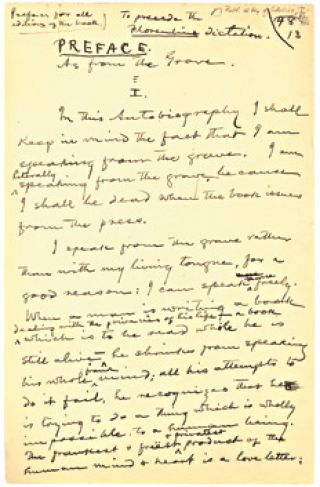 Preface for all
editions of the book.
To precede the
Florentine dictation.
48
13
PREFACE.
As from the Grave.
I.
In this Autobiography I shall
keep in mind the fact that I am
speaking from the grave. I am
literally
speaking from the grave, because
I shall be dead when the book issues
from the press.
I speak from the grave rather
than with my living tongue, for a
good reason: I can speak thence freely.
When a man is writing a book
dealing with the privacies of his life — a book
which is to be read while he is
still alive — he shrinks from speaking
his whole frank mind; all his attempts to
do it fail, he recognizes that he
is trying to do a thing which is wholly
impossible to a human being.
The frankest & freest & privatest product of the
human mind & heart is a love letter;